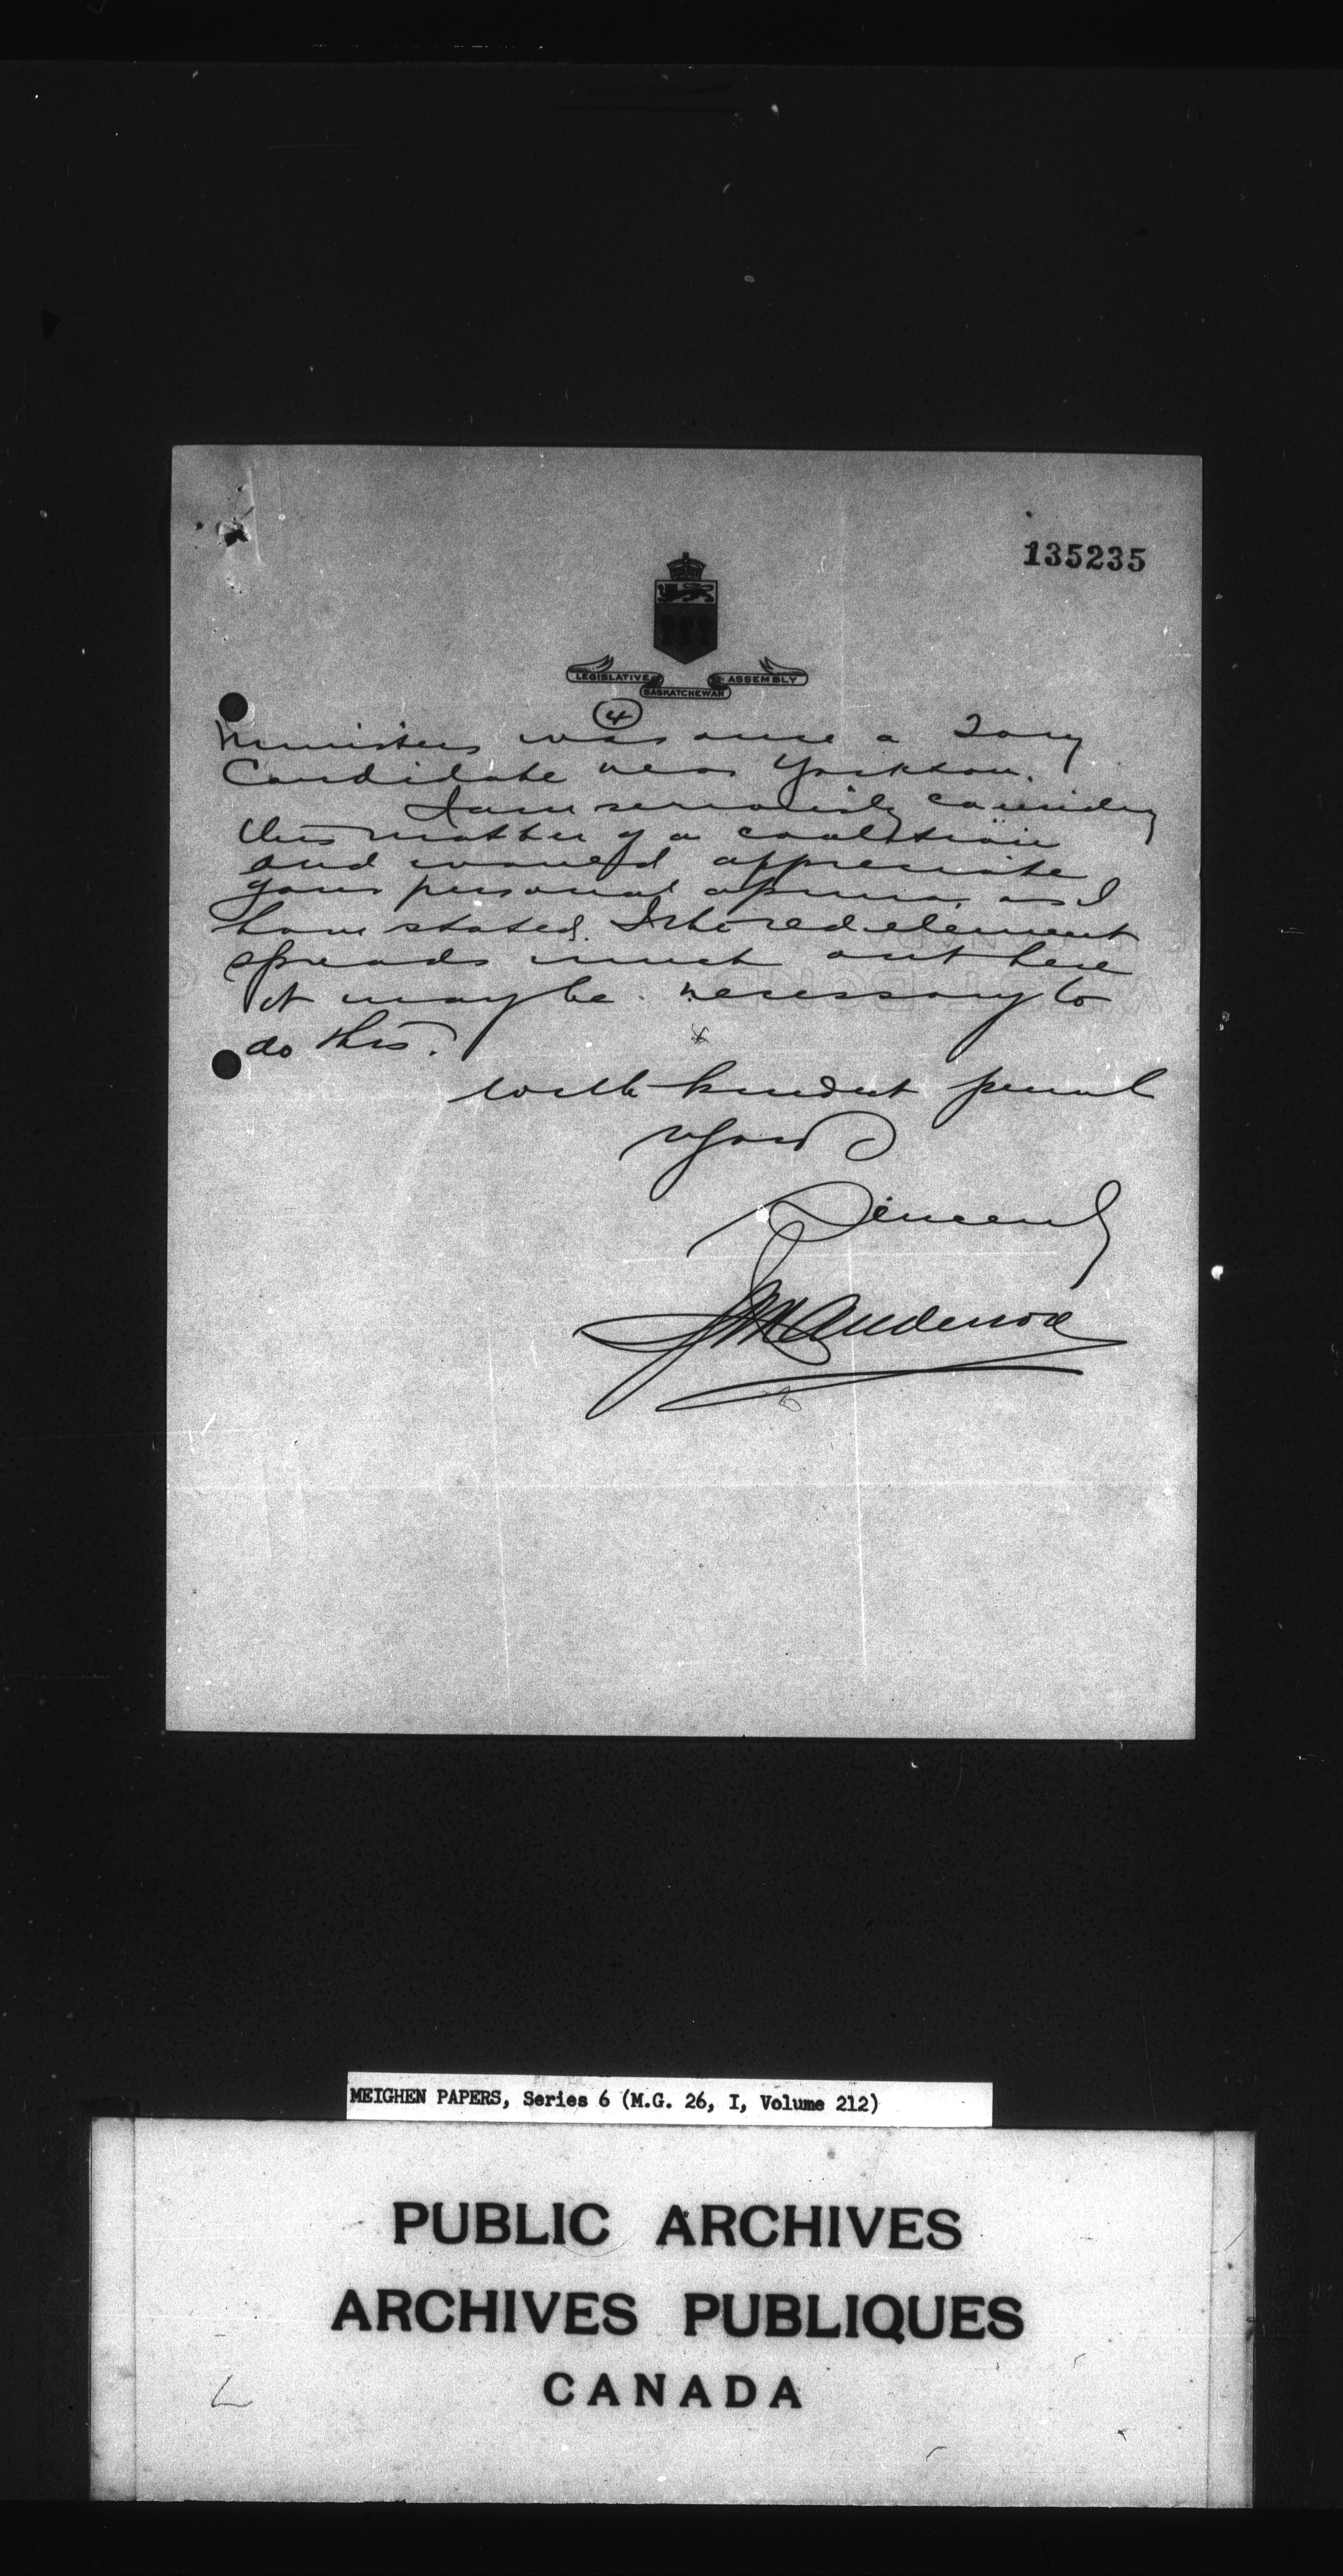 135235
LEGISLATIVE ASSEMBLY
SASKATCHEWAN
4
Ministers was once a Tory
Candidate near Yorkton.
I am seriously considering
this matter of a coalition
and would appreciate
your personal opinion as I
have stated. If the red element
spreads much out here
it may be necessary to
do this.
With kindest personal
regards
Sincerely
JTM Anderson
MEIGHEN PAPERS, Series 6 (M.G. 26, I, Volume 212)
PUBLIC ARCHIVES
ARCHIVES PUBLIQUES
CANADA